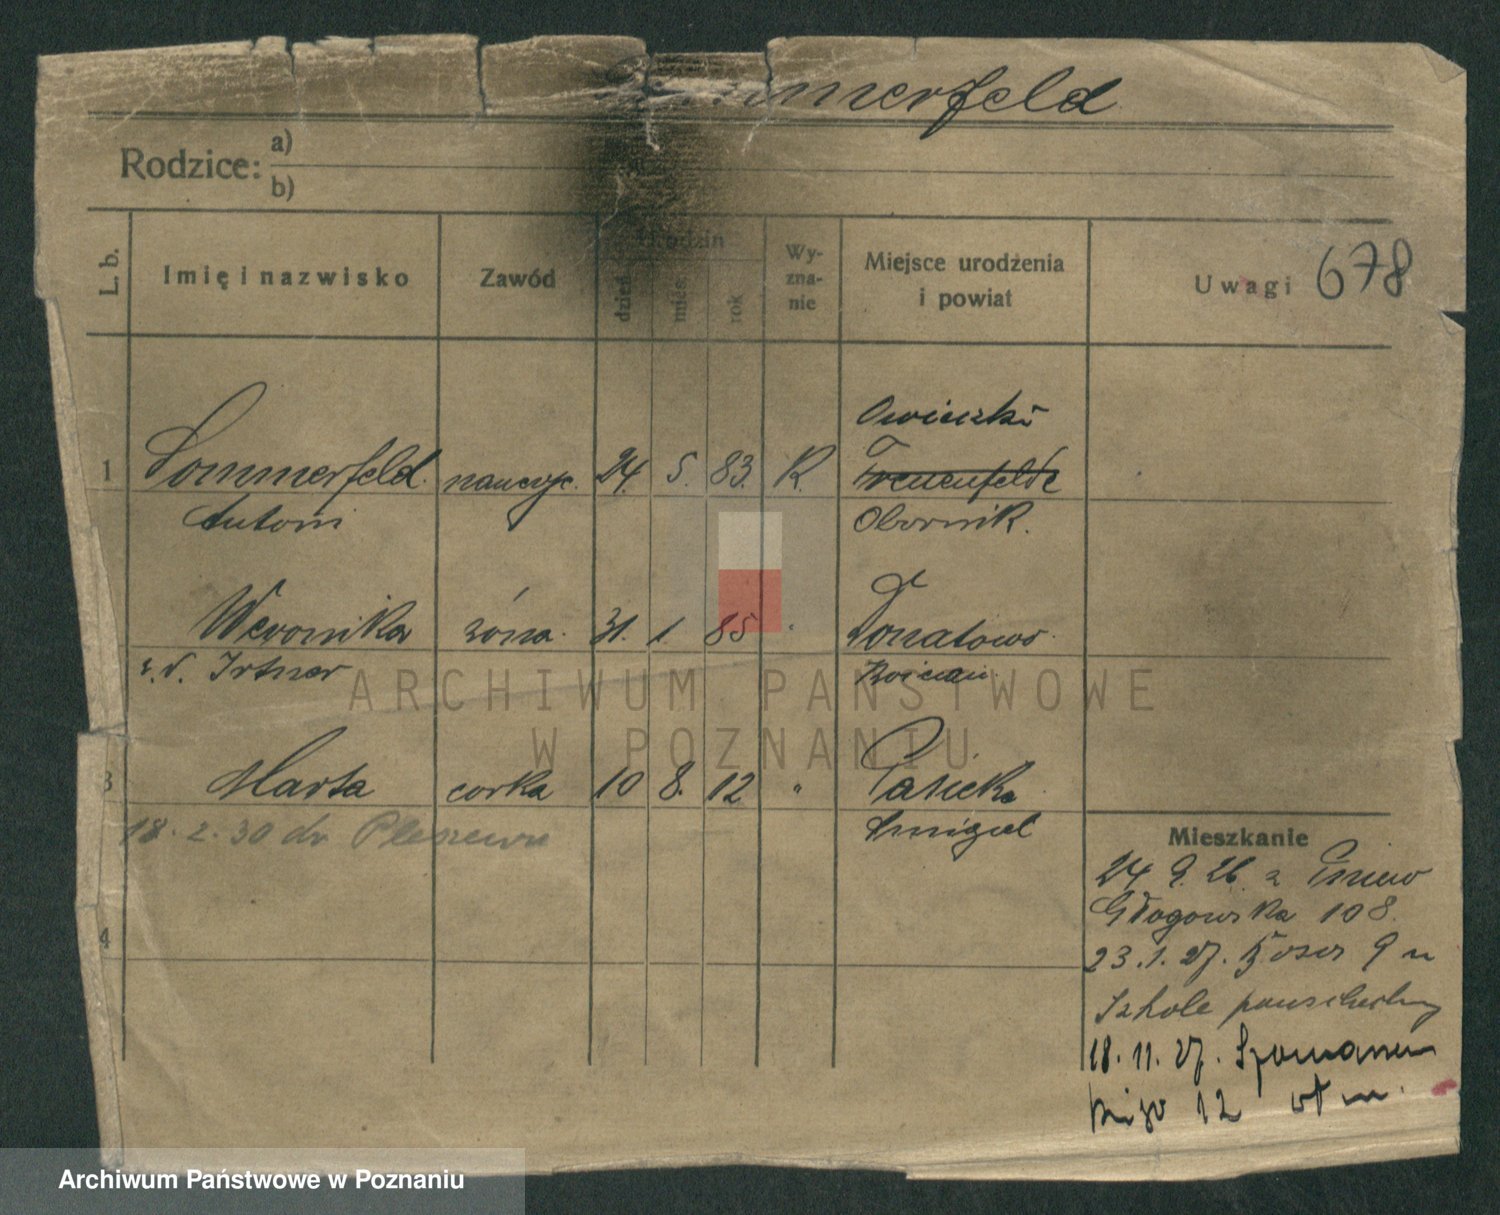 Sommerfeld
Rodzice: a)
b)
L. b.
Imię i nazwisko
Zawód
Urodzin
dzień
mies.
rok
Wy-
zna-
nie
Miejsce urodzenia
i powiat
Uwagi 678
Owieczki
1 Sommerfeld nauczyc. 24. 5. 83. R. Treuenfelde
Antoni Obornik.
Weronika żona. 31. 1. 85 " Donatowo.
z. d. Irtner Kościan
3 Marta corka 10 8. 12 " Parsko
18. 2. 30 do Pleszewa Śmigiel
Mieszkanie
24 9. 26. z Gniew
Głogowska 108.
4
23. 1. 27. 9 m
Szkole powszechny
18. 11. 27.
12
ARCHIWUM PAŃSTWOWE
W POZNANIU
Archiwum Państwowe w Poznaniu